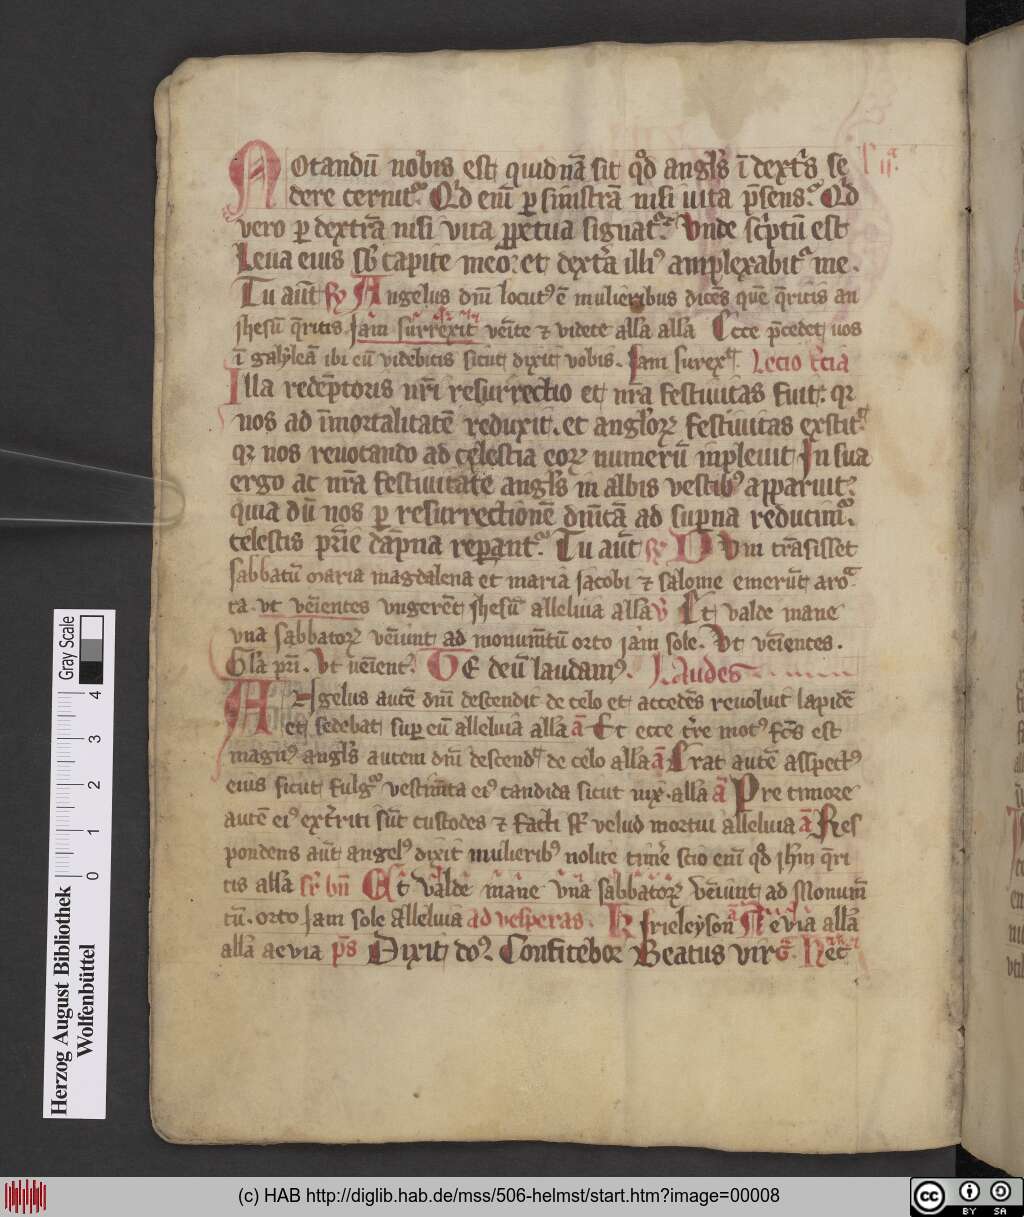 Notandū nobis est quidnā sit qd angls ī dextris se
dere cernitur Qid enī p sinistrā nisi uita psens Qid
vero p dextrā nisi vita ppetua signatur Vnde scptū est
Leua eius sb capite meo et dextra illi9 amplexabitr me.
Tu aūt Angelus dnī locut9 ē mulieribus dicēs quē qritis an
jhesū qritis Jam surrexit veīte ⁊ videte alla alla Ecce pcedet uos
ī galyleā ibi eū videbitis sicut dixit vobis. Jam surex Lecio tcia
Illa redēptoris nrī resurrectio et nra festiuitas fuit qr
nos ad īmortalitatē reduxit. et anglorꝝ festiuitas exstit
qr nos reuocando ad celestia eorꝝ numerū inpleuit In sua
ergo ac nra festiuitate angls in albis vestib9 apparuit
quia dū nos p resurrectionē dnicā ad supna reducim
celestis prie dāpna repant. Tu aūt Dum trāsisset
sabbatū maria magdalena et maria jacobi ⁊ salome emerūt aro
ta. vt veīentes vngerēt jhesū alleluia alla v Et valde mane
vna sabbatorꝝ veīunt ad monumtū orto jam sole. Vt veīentes.
Gla pri. Vt veient. TE deū laudam9. Laudes
ANgelus autē dnī descendit de celo et accedēs reuoluit lapidē
et sedebat sup eū alleluia alla ā Et ecce tre mot9 fcs est
magn9 angls autem dnī descend de celo alla ā Erat autē asspect9
eius sicut fulgr vestimta ei9 candida sicut nix. alla ā Pre timore
autē ei9 extriti sūt custodes ⁊ facti st velud mortui alleluia ā Res
pondens aūt angel9 dixit mulierib9 nolite timē scio enī qd jhm qri
tis alla sr bn Et valde mane vna sabbatorꝝ veīunt ad Monum
tū. orto Jam sole Alleluia ad vesperas. K kirieleyson aevia alla
alla aevia ps Dixit do Confitebor Beatus vir Hec
Herzog August Bibliothek
Wolfenbüttel
Gray Scale
0 1 2 3 4
(c) HAB http://diglib.hab.de/mss/506-helmst/start.htm?image=00008
cc BY SA